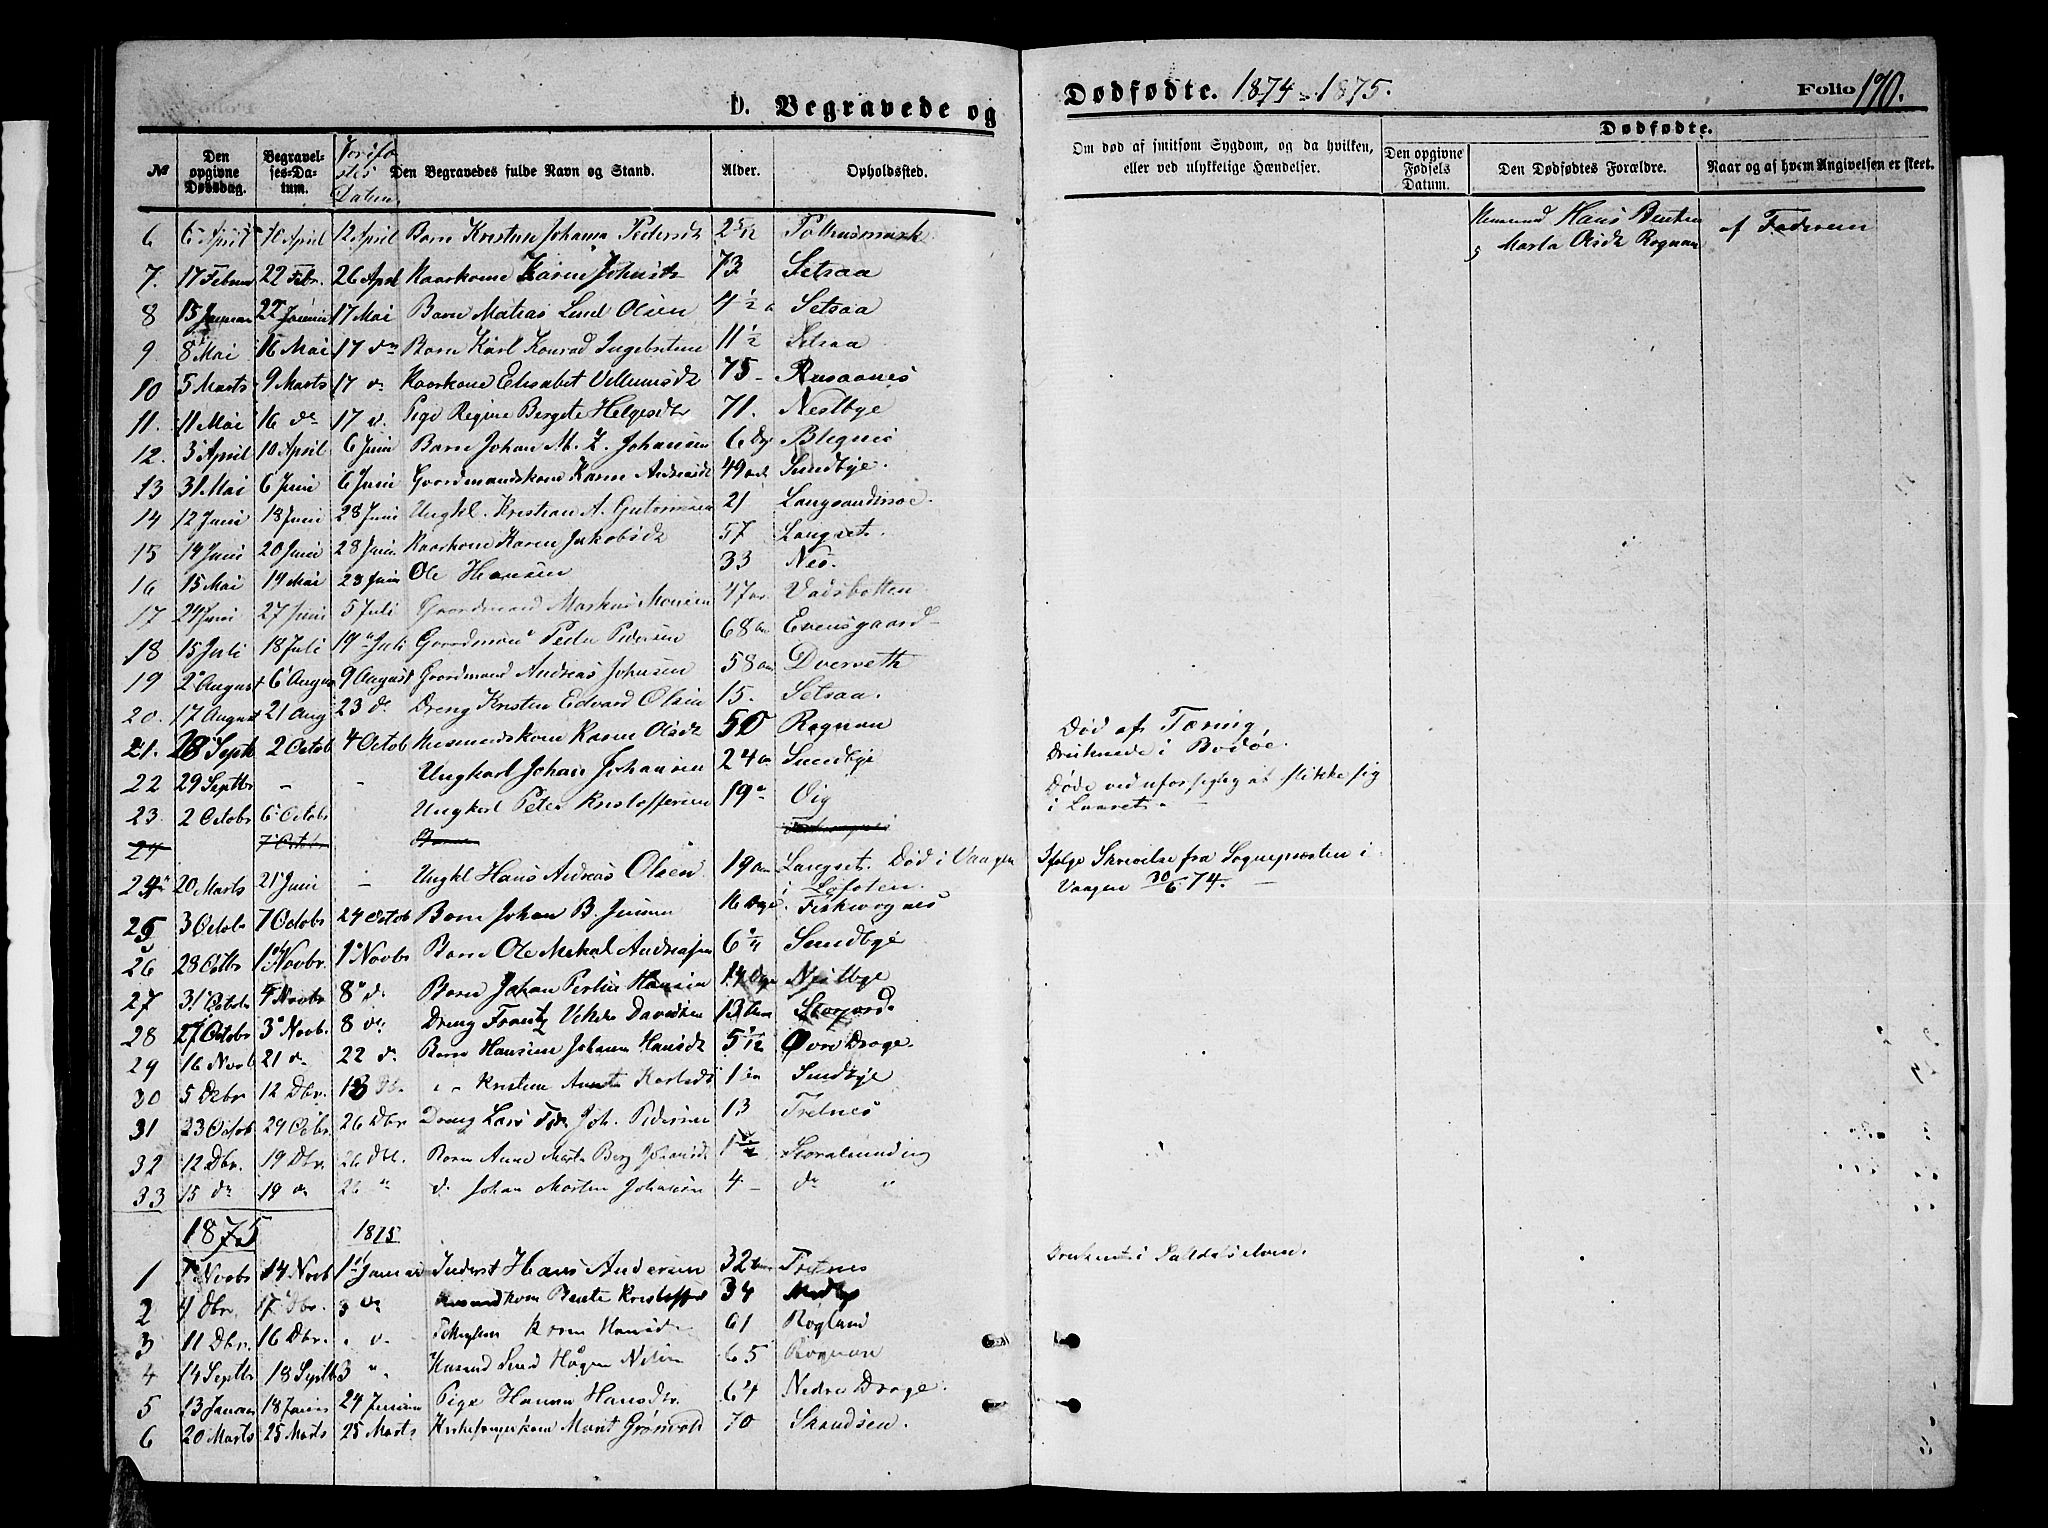 D. Begravede og Dødfødte. 1874-1875. Folio 190.
Dødfødte.
№ Den opgivne Dødsdag. Begravelses-Datum. Datum Den Begravedes fulde Navn og Stand. Alder. Opholdsted. Om død af smitsom Sygdom, og da hvilken, eller ved ulykkelige Hændelser. Den opgivne Fødsels Datum. Den Dødfødtes Forældre. Naar og af hvem Angivelsen er skeet.
6 6 April 10 April 12 April Barn Kristine Johanna Pedersdt 2 5/12 Hans Bentsen af Faderen
Marta Olsdt Rognan
7. 17 Februar 22 Febr. 26 April Kaarkone Karen Johnsdt 73 Setsaa
8 15 Januar 22 Januar 17 Mai Barn Matias Lund Olsen 4 1/2 Setsaa
9. 8 Mai 16 Mai 17 do Barn Karl Konrad Ingebretsen 11 1/2 Setsaa
10 5 Marts 9 Marts 17 do Kaarkone Elisabet Villumsdt 75 - Rusaanes
11. 11 Mai 16 do 17 d. Pige Regine Bergete Helgesdtr 71. Nestbye
12. 3 April 10 April 6 Juni Barn Johan M. Z. Johansen 6 Dge
13 31 Mai 6 Juni 6 Juni Gaardmandskone Karen Andreasdt 49 Sundbye.
14 12 Juni 18 Juni 28 Juni Ungkl. Kristian A. 21
15 14 Juni 20 Juni 28 Juni Kaarkone Karen Jakobsdt 57 Langset.
16 15 Mai 19 Mai 28 Juni Ole Hansen 33 Nes.
17 24 Juni 27 Juni 5 Juli Gaardmand Markus Monsen 47 Vadsbotten
18 15 Juli 18 Juli 19 Juli Gaardmand Peder Pedersen 68 Evensgaard
19 2 August 6 August 9 August Gaardmand Andreas Johnsen 58 Dverseth
20. 17 August 21 Aug 23 do Dreng Kristen Edvard Olsen 15. Setsaa.
21. 28 Septb 2 Octob 4 Octob Husmandskone Karen Olsdt 50 Rognan Død af Tæring
22 29 Septbr - - Ungkarl Johan Johansen 24 Sundbye Druknede i Bodøe.
23. 2 Octobr 6 Octobr Ungkarl Peter Kristoffersen 19 Vig Døde ved uforsigtig at stikke sig
i Laaret.
24 7 Octobr Barn
24 20 Marts 21 Juni - Ungkl Hans Andreas Olsen 19 Langset. Død i Vaagen Ifølge Skrivelse fra Sognepresten i
i Lofoten. Vaagen 30/6 74. -
25 3 Octobr 7 Octobr 24 Octob Barn Johan B. Jensen 16 Dge Fiskvognes
26 28 Octbr 1 Novbr. 1 Novbr Barn Ole Mekal Andreassen 6 Sundbye
27 31 Octobr Novbr 8 d. Barn Johan Hansen 14 Dge
28 27 Octobr 3 Novb. 8 do Dreng Frantz Davidsen 13 Storjord.
29 16 Novb 21 do 22 d. Barn Hansine Johanna Hansdt 5 Øvre Drage.
30 5 Debr 12 Dbr. 13 Db. " - Kristine Karlsdt 1 Sundbye
31 23 Octob 29 Octbr. 26 Dbr Dreng Lars Joh. Pedersen 13 Trelnes
32 12 Dbr. 19 Dbr. 26 Dbr. Barn Anne Marta Berg Johansdt 1 Storalmending
33 15 do 19 do 26 " d. Johan Morten Johansen 4 - do "
1875 1875
1 Novbr 14 Novb 1 Januar Inderst Hans Andersen 32 Trelnes Druknet i Saltdalselven.
2 4 Dbr. 17 Dbr. 3 do Bente 34
3 11 Dbr. 16 Dbr. " d. Karen Hansdt 61 Rogland
4 14 Septbr 18 Septbr 3 " Husmd Hågen Nilsen 65 Rognan
5 13 Januar 18 Januar 24 Januar Pige Hanna Hansdtr. 64 Nedre Drage.
6 20 Marts 25 Marts 25 Marts Kirkesangerkone Marit Grønvold 70 Skandsen.